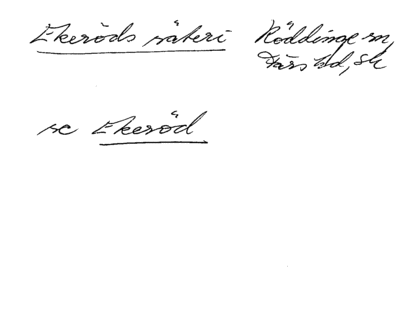 Ekeröds säteri Röddinge sn,
Färs hd, Sk
se Ekeröd